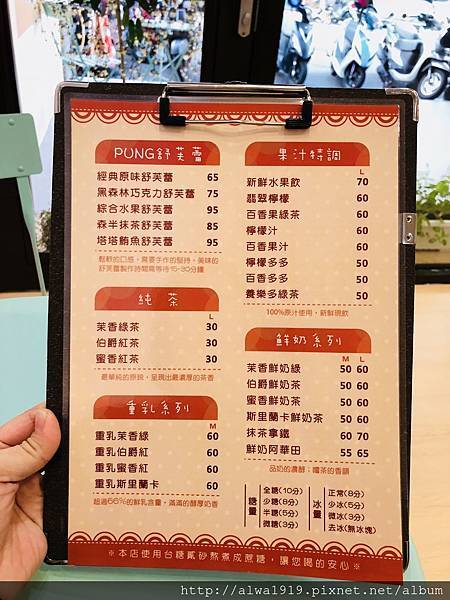 PUNG舒芙蕾
經典原味舒芙蕾 65
黑森林巧克力舒芙蕾 75
綜合水果舒芙蕾 95
森半抹茶舒芙蕾 95
塔塔鮪魚舒芙蕾 95
鬆軟的口感，需要手作的堅持。美味的
舒芙蕾製作時間需等待15-30分鐘
純茶
L
茉香綠茶 30
伯爵紅茶 30
蜜香紅茶 30
最單純的原貌，呈現出最濃厚的茶香
重乳系列
M
重乳茉香綠 60
重乳伯爵紅 60
重乳蜜香紅 60
重乳斯里蘭卡 60
超過66%的鮮乳含量，滿滿的醇厚奶香
果汁特調
L
新鮮水果飲 70
翡翠檸檬 60
百香果綠茶 60
檸檬汁 60
百香果汁 60
檸檬多多 50
百香多多 50
養樂多綠茶 50
100%原汁使用，新鮮現飲
鮮奶系列
M L
茉香鮮奶綠 50 60
伯爵鮮奶茶 50 60
蜜香鮮奶茶 50 60
斯里蘭卡鮮奶茶 50 60
抹茶拿鐵 60 70
鮮奶阿華田 55 65
品奶的濃醇；嚐茶的香韻
糖量
全糖(10分)
少糖(8分)
半糖(5分)
微糖(3分)
冰量
正常(8分)
少冰(5分)
微冰(3分)
去冰(無冰塊)
※本店使用台糖貳砂熬煮成蔗糖，讓您喝的安心※
http://alwa1919.pixnet.net/album